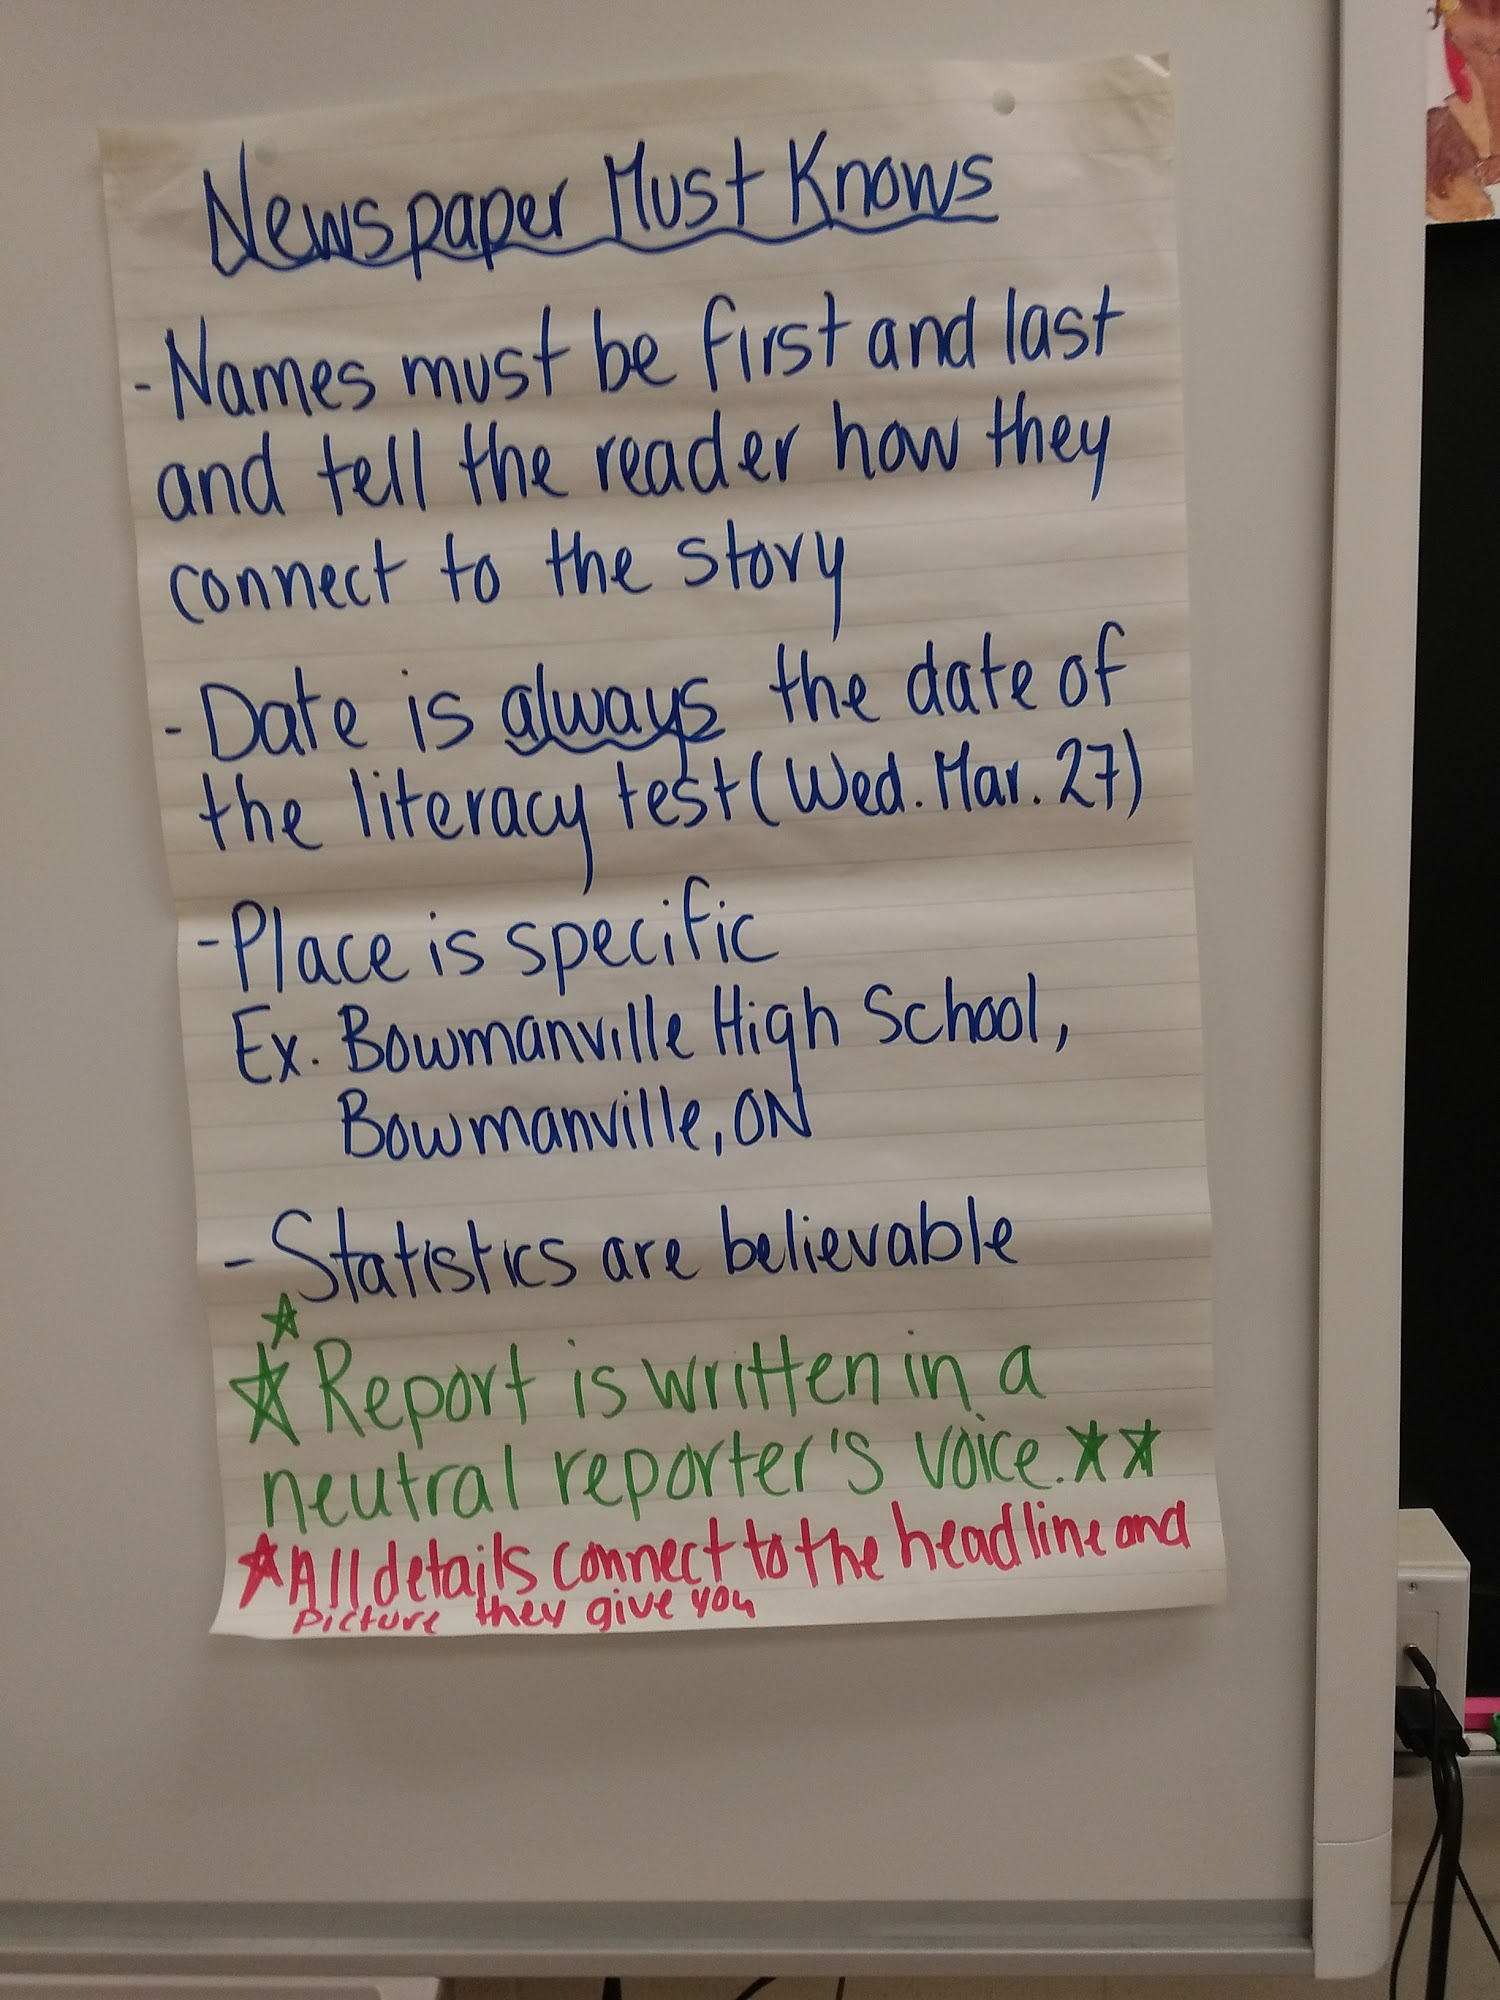 Newspaper Must Knows
- Names must be first and last
and tell the reader how they
connect to the story
- Date is always the date of
the literacy test (Wed. Mar. 27)
- Place is specific
Ex. Bowmanville High School,
Bowmanville, ON
- Statistics are believable
☆
☆ Report is written in a
neutral reporter's voice. ☆☆
☆ All details connect to the headline and
picture they give you